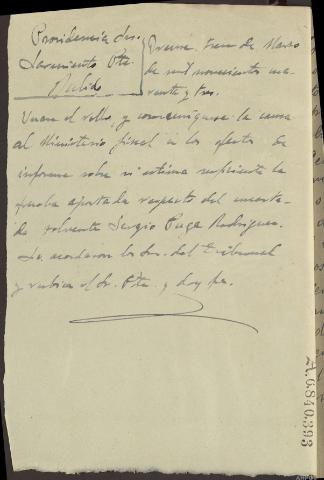 Providencia de
Sarmiento Pte.
Pulido
trece de Marzo
de mil novecientos cua-
renta y tres.
Unase al rollo, y comuniquese la causa
al Ministerio fiscal a los efectos de
informe sobre si estima suficiente la
prueba aportada respecto del encarta-
do solvente Sergio Puga Rodriguez.
Lo acordaron los Sres. del Tribunal
y rubrica el Sr. Pte. y doy fe.
A.6.840.393